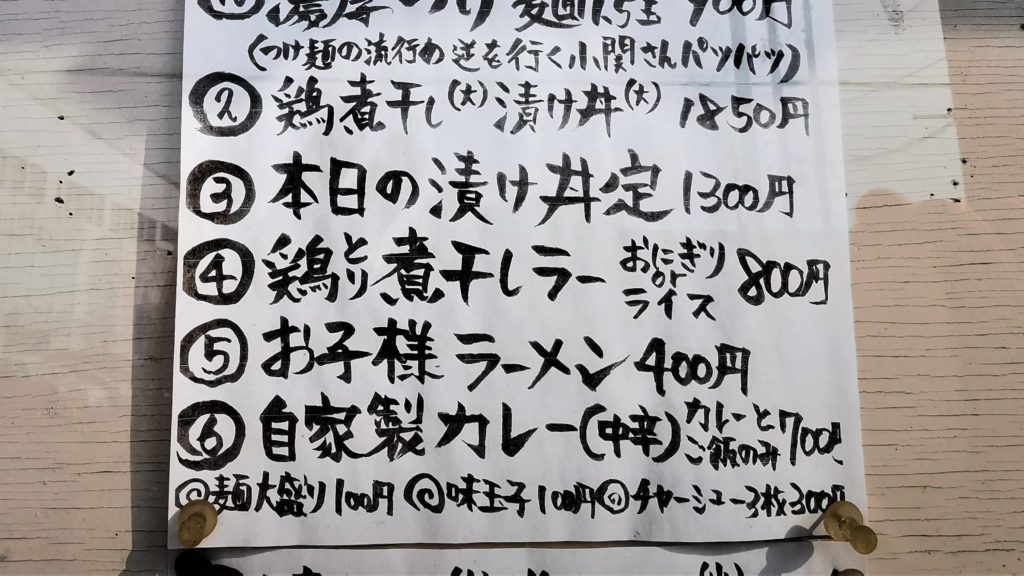 濃厚つけ麺1.5玉 900円
(つけ麺の流行の逆を行く小関さんパツパツ)
② 鶏煮干し(大) 漬け丼(大) 1850円
③ 本日の漬け丼定 1300円
④ 鶏とり煮干しラー おにぎりorライス 800円
⑤ お子様ラーメン 400円
⑥ 自家製カレー(中辛) カレーとご飯のみ 700円
◎麺大盛り100円 ◎味玉子100円 ◎チャーシュー3枚300円